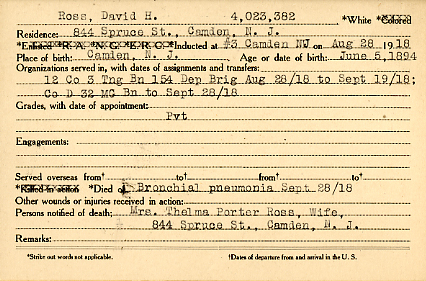 Ross, David H. 4,023,382 *White *Colored
Residence: 844 Spruce St., Camden, N. J.
*Enlisted *R A *N G *E R C *Inducted at #3 Camden NJ on Aug 28 1918
Place of birth: Camden, N. J. Age or date of birth: June 5,1894
Organizations served in, with dates of assignments and transfers:
12 Co 3 Tng Bn 154 Dep Brig Aug 28/18 to Sept 19/18;
Co D 32 MG Bn to Sept 28/18
Grades, with date of appointment:
Pvt
Engagements:
Served overseas from† to† from† to†
*Killed in action *Died of Bronchial pneumonia Sept 28/18
Other wounds or injuries received in action:
Persons notified of death: Mrs. Thelma Porter Ross, Wife,
844 Spruce St., Camden, N. J.
Remarks:
*Strike out words not applicable. †Dates of departure from and arrival in the U. S.